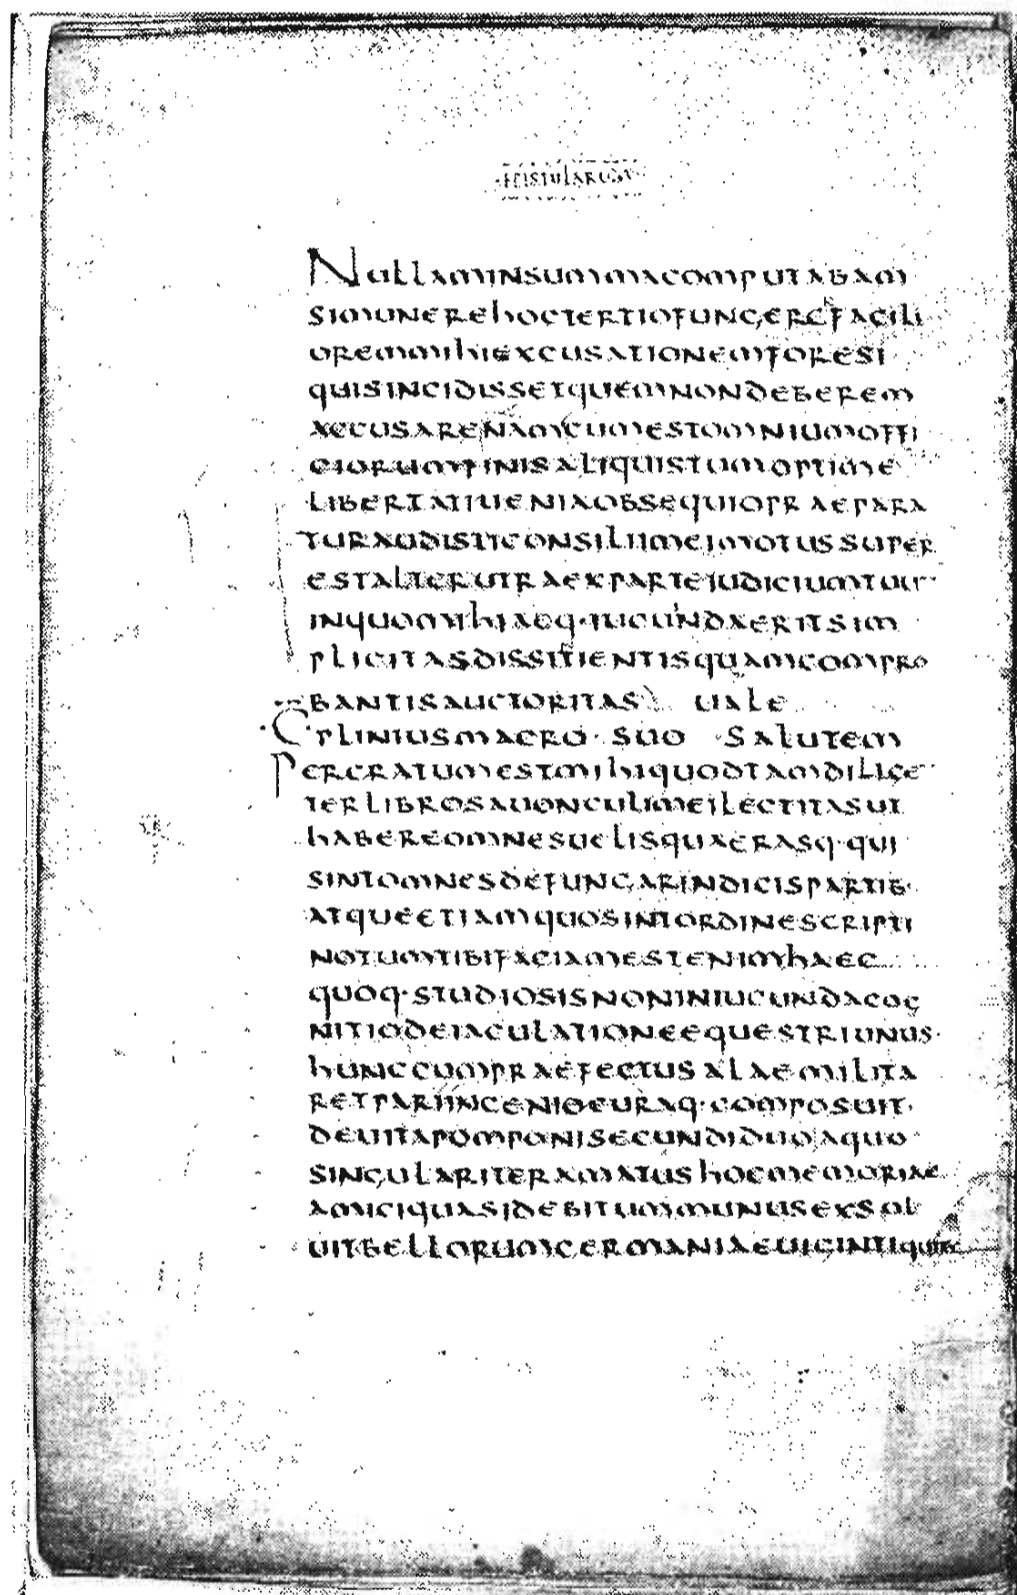 ·EPISTULARUM·
NULLAMINSUMMACOMPUTABAM
SIMUNEREHOCTERTIOFUNGERERFACILI
OREMMIHIEXCUSATIONEMFORESI
QUISINCIDISSETQUEMNONDEBEREM
ACCUSARENAMCUMESTOMNIUMOFFI
CIORUMFINISALIQUISTUMOPTIME
LIBERTATIUENIAOBSEQUIOPRAEPARA
TURAUDISTICONSILIIMEIMOTUSSUPER
ESTALTERUTRAEXPARTEIUDICIUMTUU
INQUOMIHIAEQ·IUCUNDAERITSIM
PLICITASDISSITIENTISQUAMCOMPRO
BANTISAUCTORITAS UALE
·C·PLINIUSMACRO·SUO ·SALUTEM
PERGRATUMESTMIHIQUODTAMDILIGE
TERLIBROSAUONCULIMEILECTITASUT
HABEREOMNESUELISQUAERASQ·QUI
SINTOMNESDEFUNGARINDICISPARTIB·
ATQUEETIAMQUOSINTORDINESCRIPTI
NOTUMTIBIFACIAMESTENIMHAEC
QUOQ·STUDIOSISNONINIUCUNDACOG
NITIODEIACULATIONEEQUESTRIUNUS·
HUNCCUMPRAEFECTUSALAEMILITA
RETPARIINGENIOCURAQ·COMPOSUIT·
DEUITAPOMPONISECUNDIDUOAQUO
SINGULARITERAMATUSHOCMEMORIAE
AMICIQUASIDEBITUMMUNUSEXSOL
UITBELLORUMGERMANIAEUIGINTIQUIB·